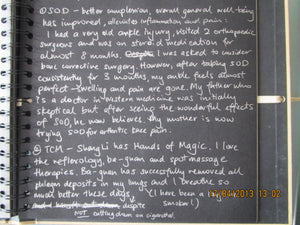 ① SOD - better complexion, overall general well-being
has improved, alleviates inflammation and pain.
I had a very old ankle injury, visited 2 orthopaedic
surgeons and was on steroid medication for
almost 8 months. I was asked to consider
bone corrective surgery. However, after taking SOD
consistently for 3 months, my ankle feels almost
perfect - swelling and pain are gone. My father who
is a doctor in western medicine was initially
skeptical but after seeing the wonderful effects
of SOD, he now believes. My mother is now
trying SOD for arthritic knee pain.
② TCM - Shang Li has Hands of Magic. I love
the reflexology, ba-guan and spot massage
therapies. Ba-guan has successfully removed all
phlegm deposits in my lungs and I breathe so
much better these days, (I have been a
despite smoker!)
NOT cutting down on cigarettes.
17/04/2013 13:02